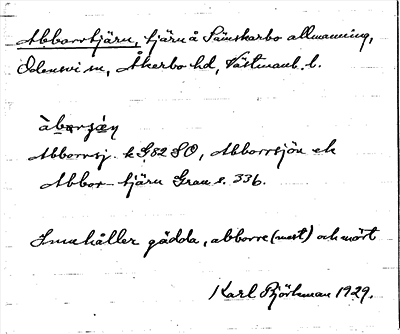 Abborrtjärn, tjärn å Sämskarbo allmänning,
Odensvi sn, Åkerbo hd, Västmanl. l.
àbɒrʂǽn
Abborrsj. k G82 SO, Abborrsjön ek
Abbor- tjärn Grau s. 336.
Innehåller gädda, abborre (mest) och mört
Karl Björkman 1929.